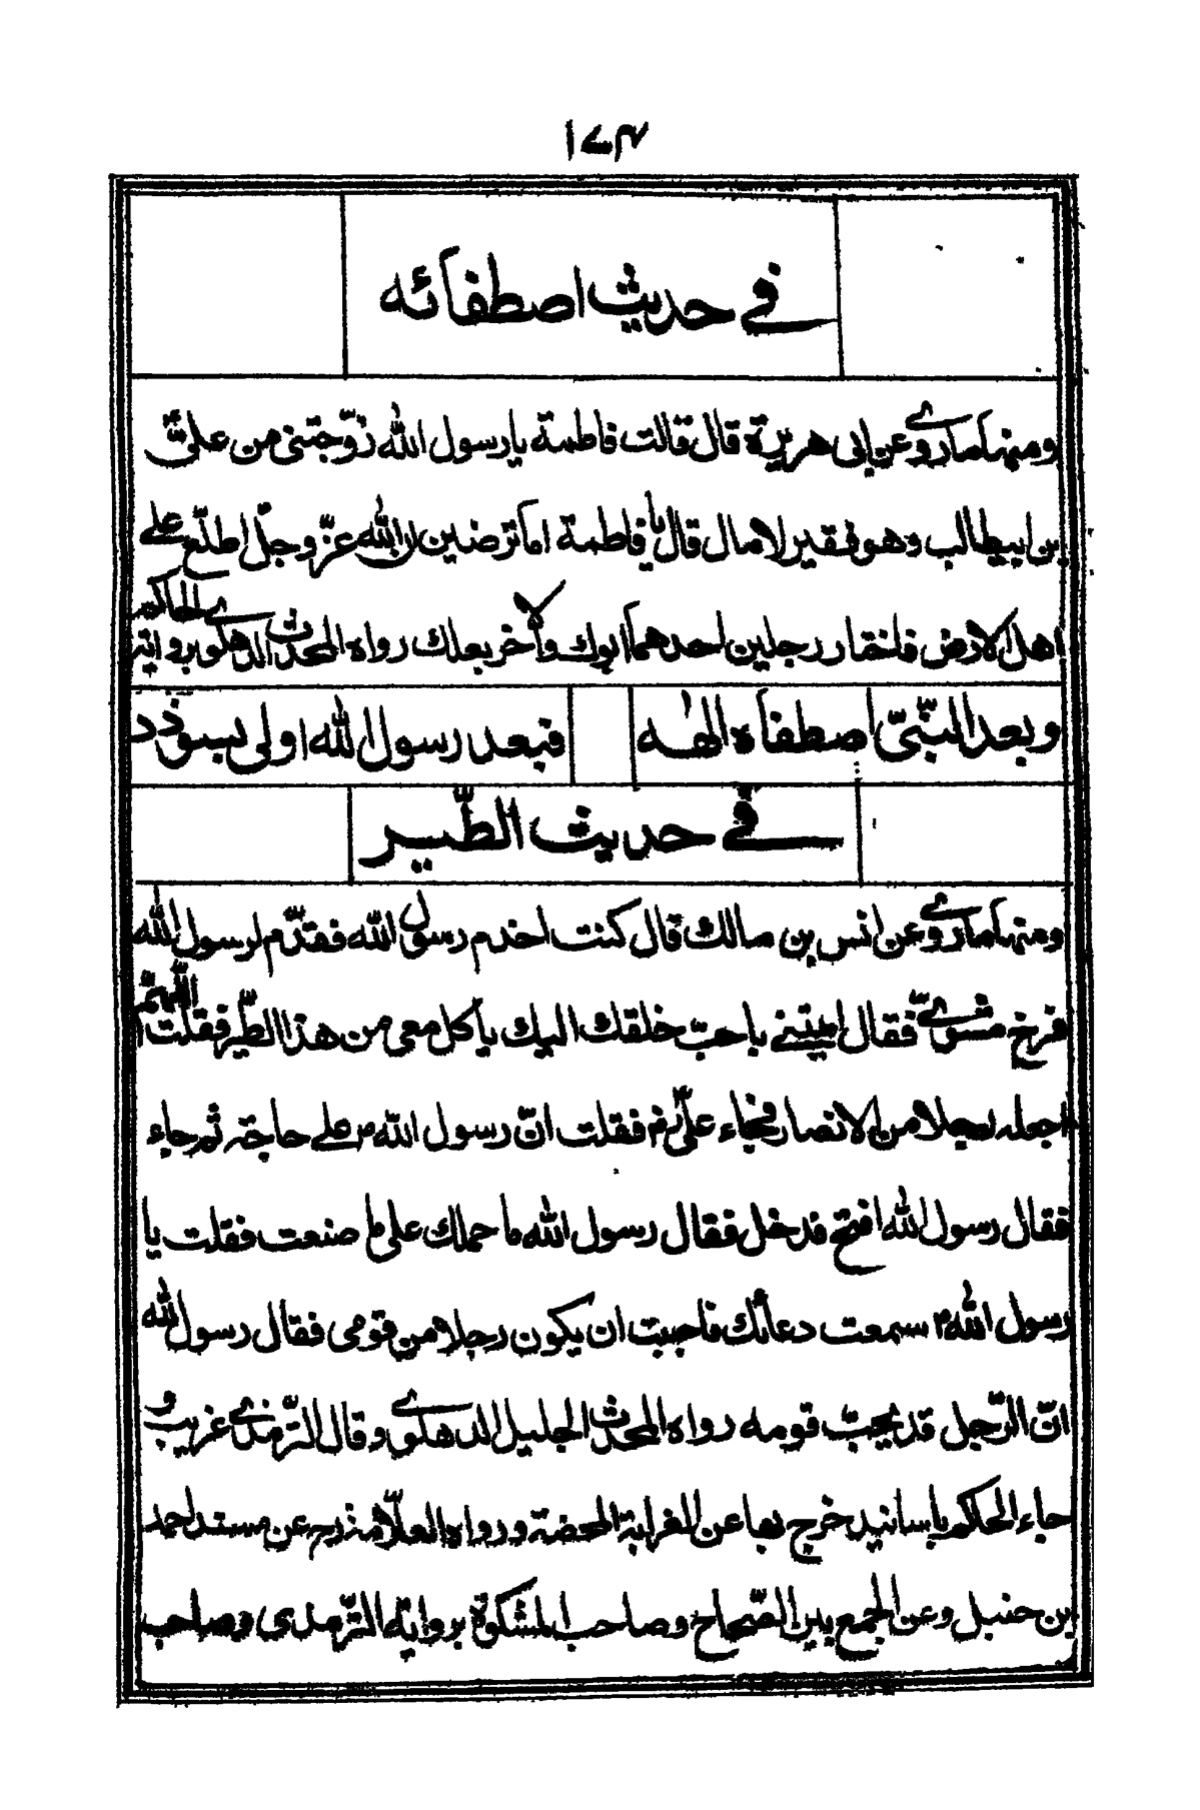 ١٧٤
في حديث اصطفائه
ومنها ما روي عن ابي هريرة قال قالت فاطمة يا رسول الله زوّجتني من عليّ
بن ابيطالب وهو فقير لا مال قال يا فاطمة اما ترضين ان الله عزّ وجلّ اطلّع على
اهل الارض فاختار رجلين احدهما ابوك والآخر بعلك رواه المحدّث الدهلوي بروايته الحاكم
وبعد النبّيّ اصطفاه الهه فبعد رسول الله اولى بسؤدد
في حديث الطّير
ومنها ما روي عن انس بن مالك قال كنت اخدم رسول الله فقدّم لرسول الله
فرخ مشويّ فقال ايتيني باحبّ خلقك اليك ياكل معي من هذا الطّير فقلت اللّهمّ
اجعله رجلا من الانصار فجاء عليّ رض فقلت انّ رسول الله ص على حاجة ثم جاء
فقال رسول الله افتح فدخل فقال رسول الله ما حملك على ما صنعت فقلت يا
رسول الله ص سمعت دعائك فاحببت ان يكون رجلا من قومي فقال رسول الله
انّ الرّجل قد يحبّ قومه رواه المحدّث الجليل الدهلوي وقال التّرمذي غريب و
جاء الحاكم باسانيد خرج بها عن الغرابة المحضة ورواه العلّامة عن مسند احمد
بن حنبل وعن الجمع بين الصّحاح وصاحب المشكوة برواية التّرمذي وصاحب